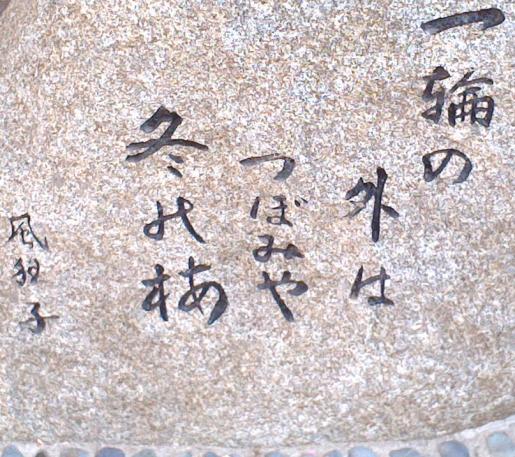 一輪の
外は
つぼみや
冬の梅
風羽子